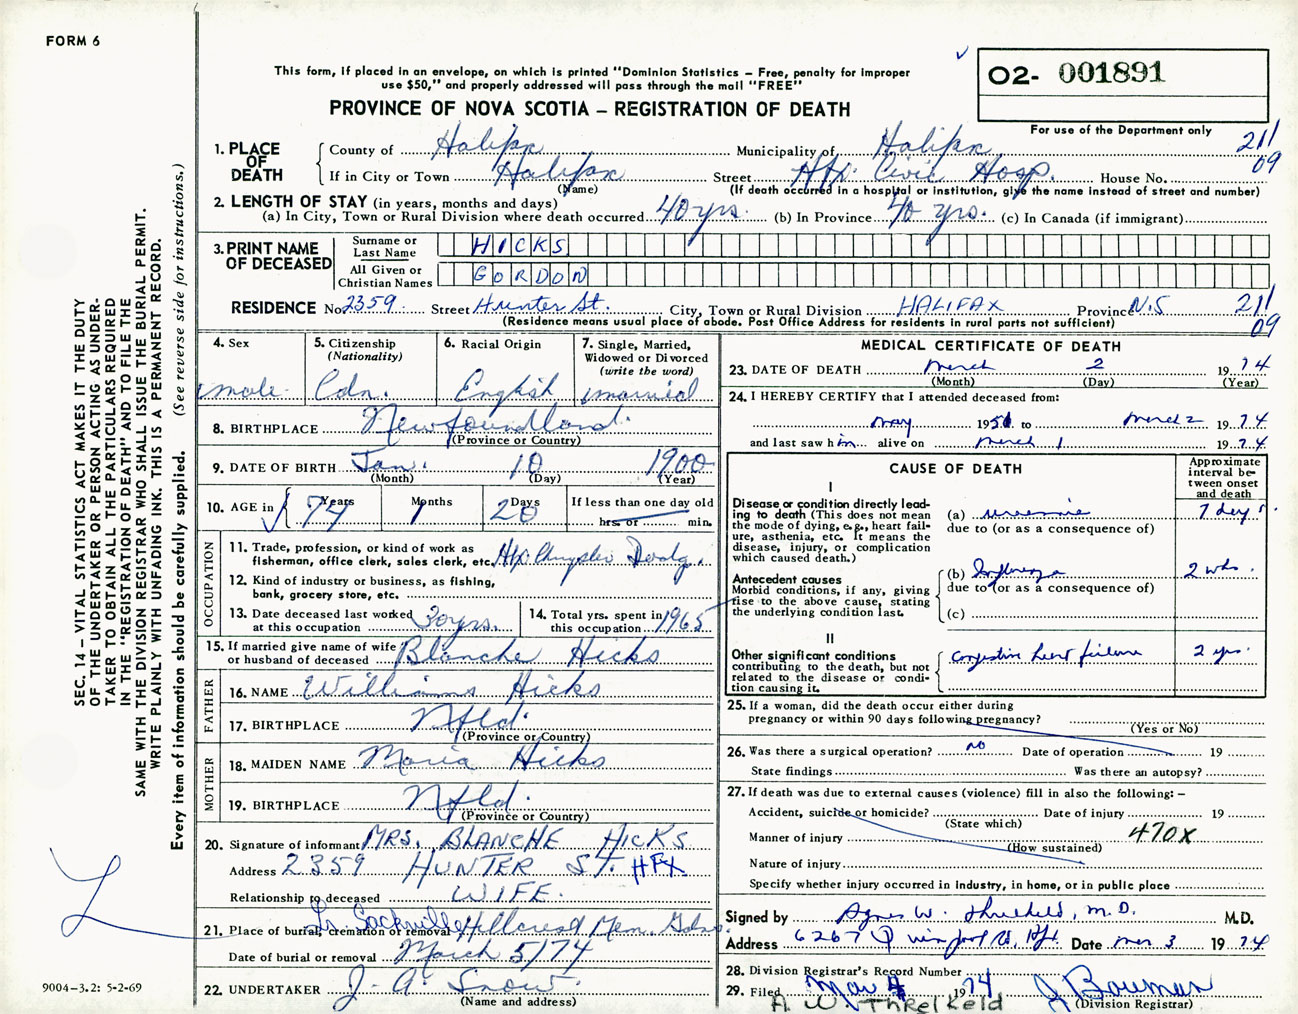 FORM 6
This form, if placed in an envelope, on which is printed "Dominion Statistics – Free, penalty for improper
use $50," and properly addressed will pass through the mail "FREE"
PROVINCE OF NOVA SCOTIA – REGISTRATION OF DEATH
02- 001891
For use of the Department only
211
09
1. PLACE OF DEATH
County of Halifax Municipality of Halifax
If in City or Town Halifax Street Hfx. Civic Hosp. House No.
(Name) (If death occurred in a hospital or institution, give the name instead of street and number)
2. LENGTH OF STAY (in years, months and days)
(a) In City, Town or Rural Division where death occurred 40 yrs. (b) In Province 40 yrs. (c) In Canada (if immigrant)
3. PRINT NAME OF DECEASED
Surname or Last Name HICKS
All Given or Christian Names GORDON
RESIDENCE No 2359 Street Hunter St. City, Town or Rural Division HALIFAX Province N.S
211
09
(Residence means usual place of abode. Post Office Address for residents in rural parts not sufficient)
SEC. 14 – VITAL STATISTICS ACT MAKES IT THE DUTY
OF THE UNDERTAKER OR PERSON ACTING AS UNDER-
TAKER TO OBTAIN ALL THE PARTICULARS REQUIRED
IN THE "REGISTRATION OF DEATH" AND TO FILE THE
SAME WITH THE DIVISION REGISTRAR WHO SHALL ISSUE THE BURIAL PERMIT.
WRITE PLAINLY WITH UNFADING INK. THIS IS A PERMANENT RECORD.
Every item of information should be carefully supplied. (See reverse side for instructions.)
4. Sex
male
5. Citizenship
(Nationality)
Cdn.
6. Racial Origin
English
7. Single, Married,
Widowed or Divorced
(write the word)
married
8. BIRTHPLACE Newfoundland.
(Province or Country)
9. DATE OF BIRTH Jan. 10 1900
(Month) (Day) (Year)
10. AGE in Years Months Days If less than one day old
74 1 20 hrs. or min.
OCCUPATION
11. Trade, profession, or kind of work as
fisherman, office clerk, sales clerk, etc. Hfx Chrysler Dodg.
12. Kind of industry or business, as fishing,
bank, grocery store, etc.
13. Date deceased last worked
at this occupation 30 yrs.
14. Total yrs. spent in
this occupation 1965
15. If married give name of wife
or husband of deceased Blanche Hicks
FATHER
16. NAME Williams Hicks
17. BIRTHPLACE Nfld.
(Province or Country)
MOTHER
18. MAIDEN NAME Maria Hicks
19. BIRTHPLACE Nfld.
(Province or Country)
20. Signature of informant MRS. BLANCHE HICKS
Address 2359 HUNTER ST. HFX
Relationship to deceased WIFE.
21. Place of burial, cremation or removal Lr Sackville Hillcrest Mem. Gdns.
Date of burial or removal March 5/74
22. UNDERTAKER J. A. Snow.
(Name and address)
9004-3.2: 5-2-69
MEDICAL CERTIFICATE OF DEATH
23. DATE OF DEATH March 2 1974
(Month) (Day) (Year)
24. I HEREBY CERTIFY that I attended deceased from:
May 1956 to March 2 1974
and last saw him alive on March 1 1974
CAUSE OF DEATH
Approximate
interval be-
tween onset
and death
I
Disease or condition directly lead-
ing to death (This does not mean
the mode of dying, e.g., heart fail-
ure, asthenia, etc. It means the
disease, injury, or complication
which caused death.)
(a) uraemia 7 days
due to (or as a consequence of)
Antecedent causes
Morbid conditions, if any, giving
rise to the above cause, stating
the underlying condition last.
(b) Influenza 2 wks.
due to (or as a consequence of)
(c)
II
Other significant conditions
contributing to the death, but not
related to the disease or condi-
tion causing it.
Congestive heart failure 2 yrs.
25. If a woman, did the death occur either during
pregnancy or within 90 days following pregnancy?
(Yes or No)
26. Was there a surgical operation? no Date of operation 19
State findings Was there an autopsy?
27. If death was due to external causes (violence) fill in also the following: –
Accident, suicide or homicide? Date of injury 19
(State which)
Manner of injury 470X
(How sustained)
Nature of injury
Specify whether injury occurred in industry, in home, or in public place
Signed by Agnes W. Threlkeld, M.D. M.D.
Address 6267 Quinpool Rd, Hfx. Date Mar 3 1974
28. Division Registrar's Record Number
29. Filed Mar 4 1974 J Bowman
(Division Registrar)
A. W. ThRelKeld